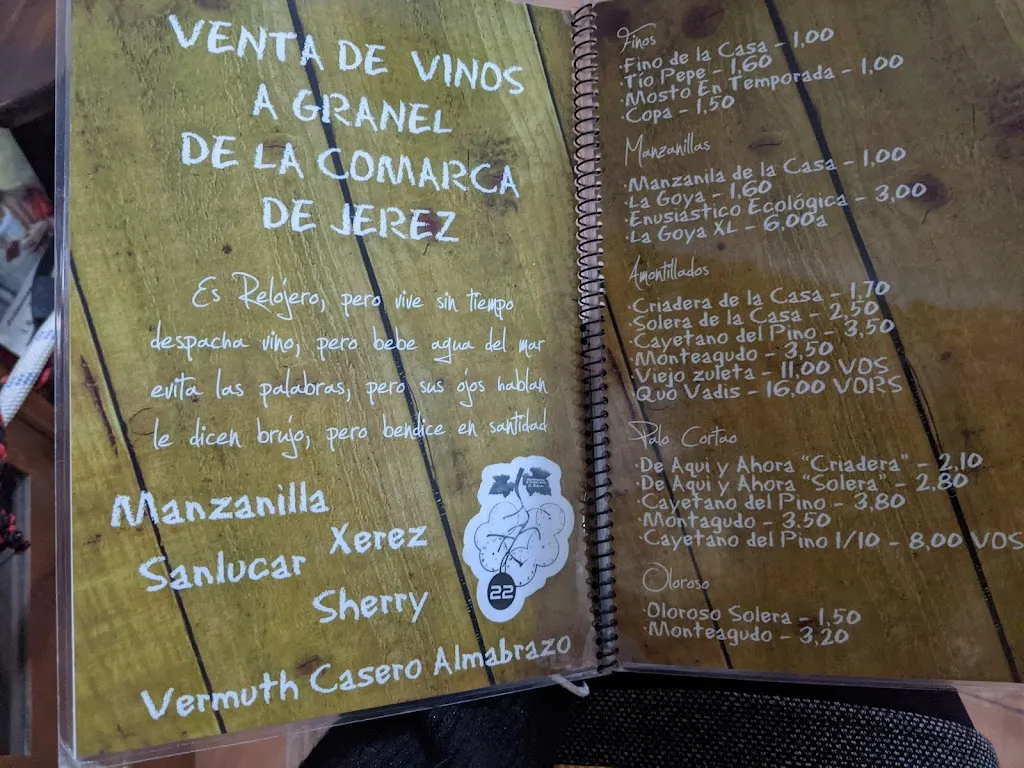 VENTA DE VINOS
A GRANEL
DE LA COMARCA
DE JEREZ
Es Relojero, pero vive sin tiempo
despacha vino, pero bebe agua del mar
evita las palabras, pero sus ojos hablan
le dicen brujo, pero bendice en santidad
Manzanilla
Xerez
Sanlucar
Sherry
22
Vermuth Casero Almabrazo
Finos
·Fino de la Casa - 1,00
·Tio Pepe - 1,60
·Mosto En Temporada - 1,00
·Copa - 1,50
Manzanillas
·Manzanila de la Casa - 1,00
·La Goya - 1,60
·Enusiástico Ecológica - 3,00
·La Goya XL - 6,00a
Amontillados
·Criadera de la Casa - 1,70
·Solera de la Casa - 2,50
·Cayetano del Pino - 3,50
·Monteagudo - 3,50
·Viejo zuleta - 11,00 VOS
·Quo Vadis - 16,00 VORS
Palo Cortao
·De Aqui y Ahora "Criadera" - 2,10
·De Aqui y Ahora "Solera" - 2,80
·Cayetano del Pino - 3,80
·Montagudo - 3,50
·Cayetano del Pino 1/10 - 8,00 VOS
Oloroso
·Oloroso Solera - 1,50
·Monteagudo - 3,20